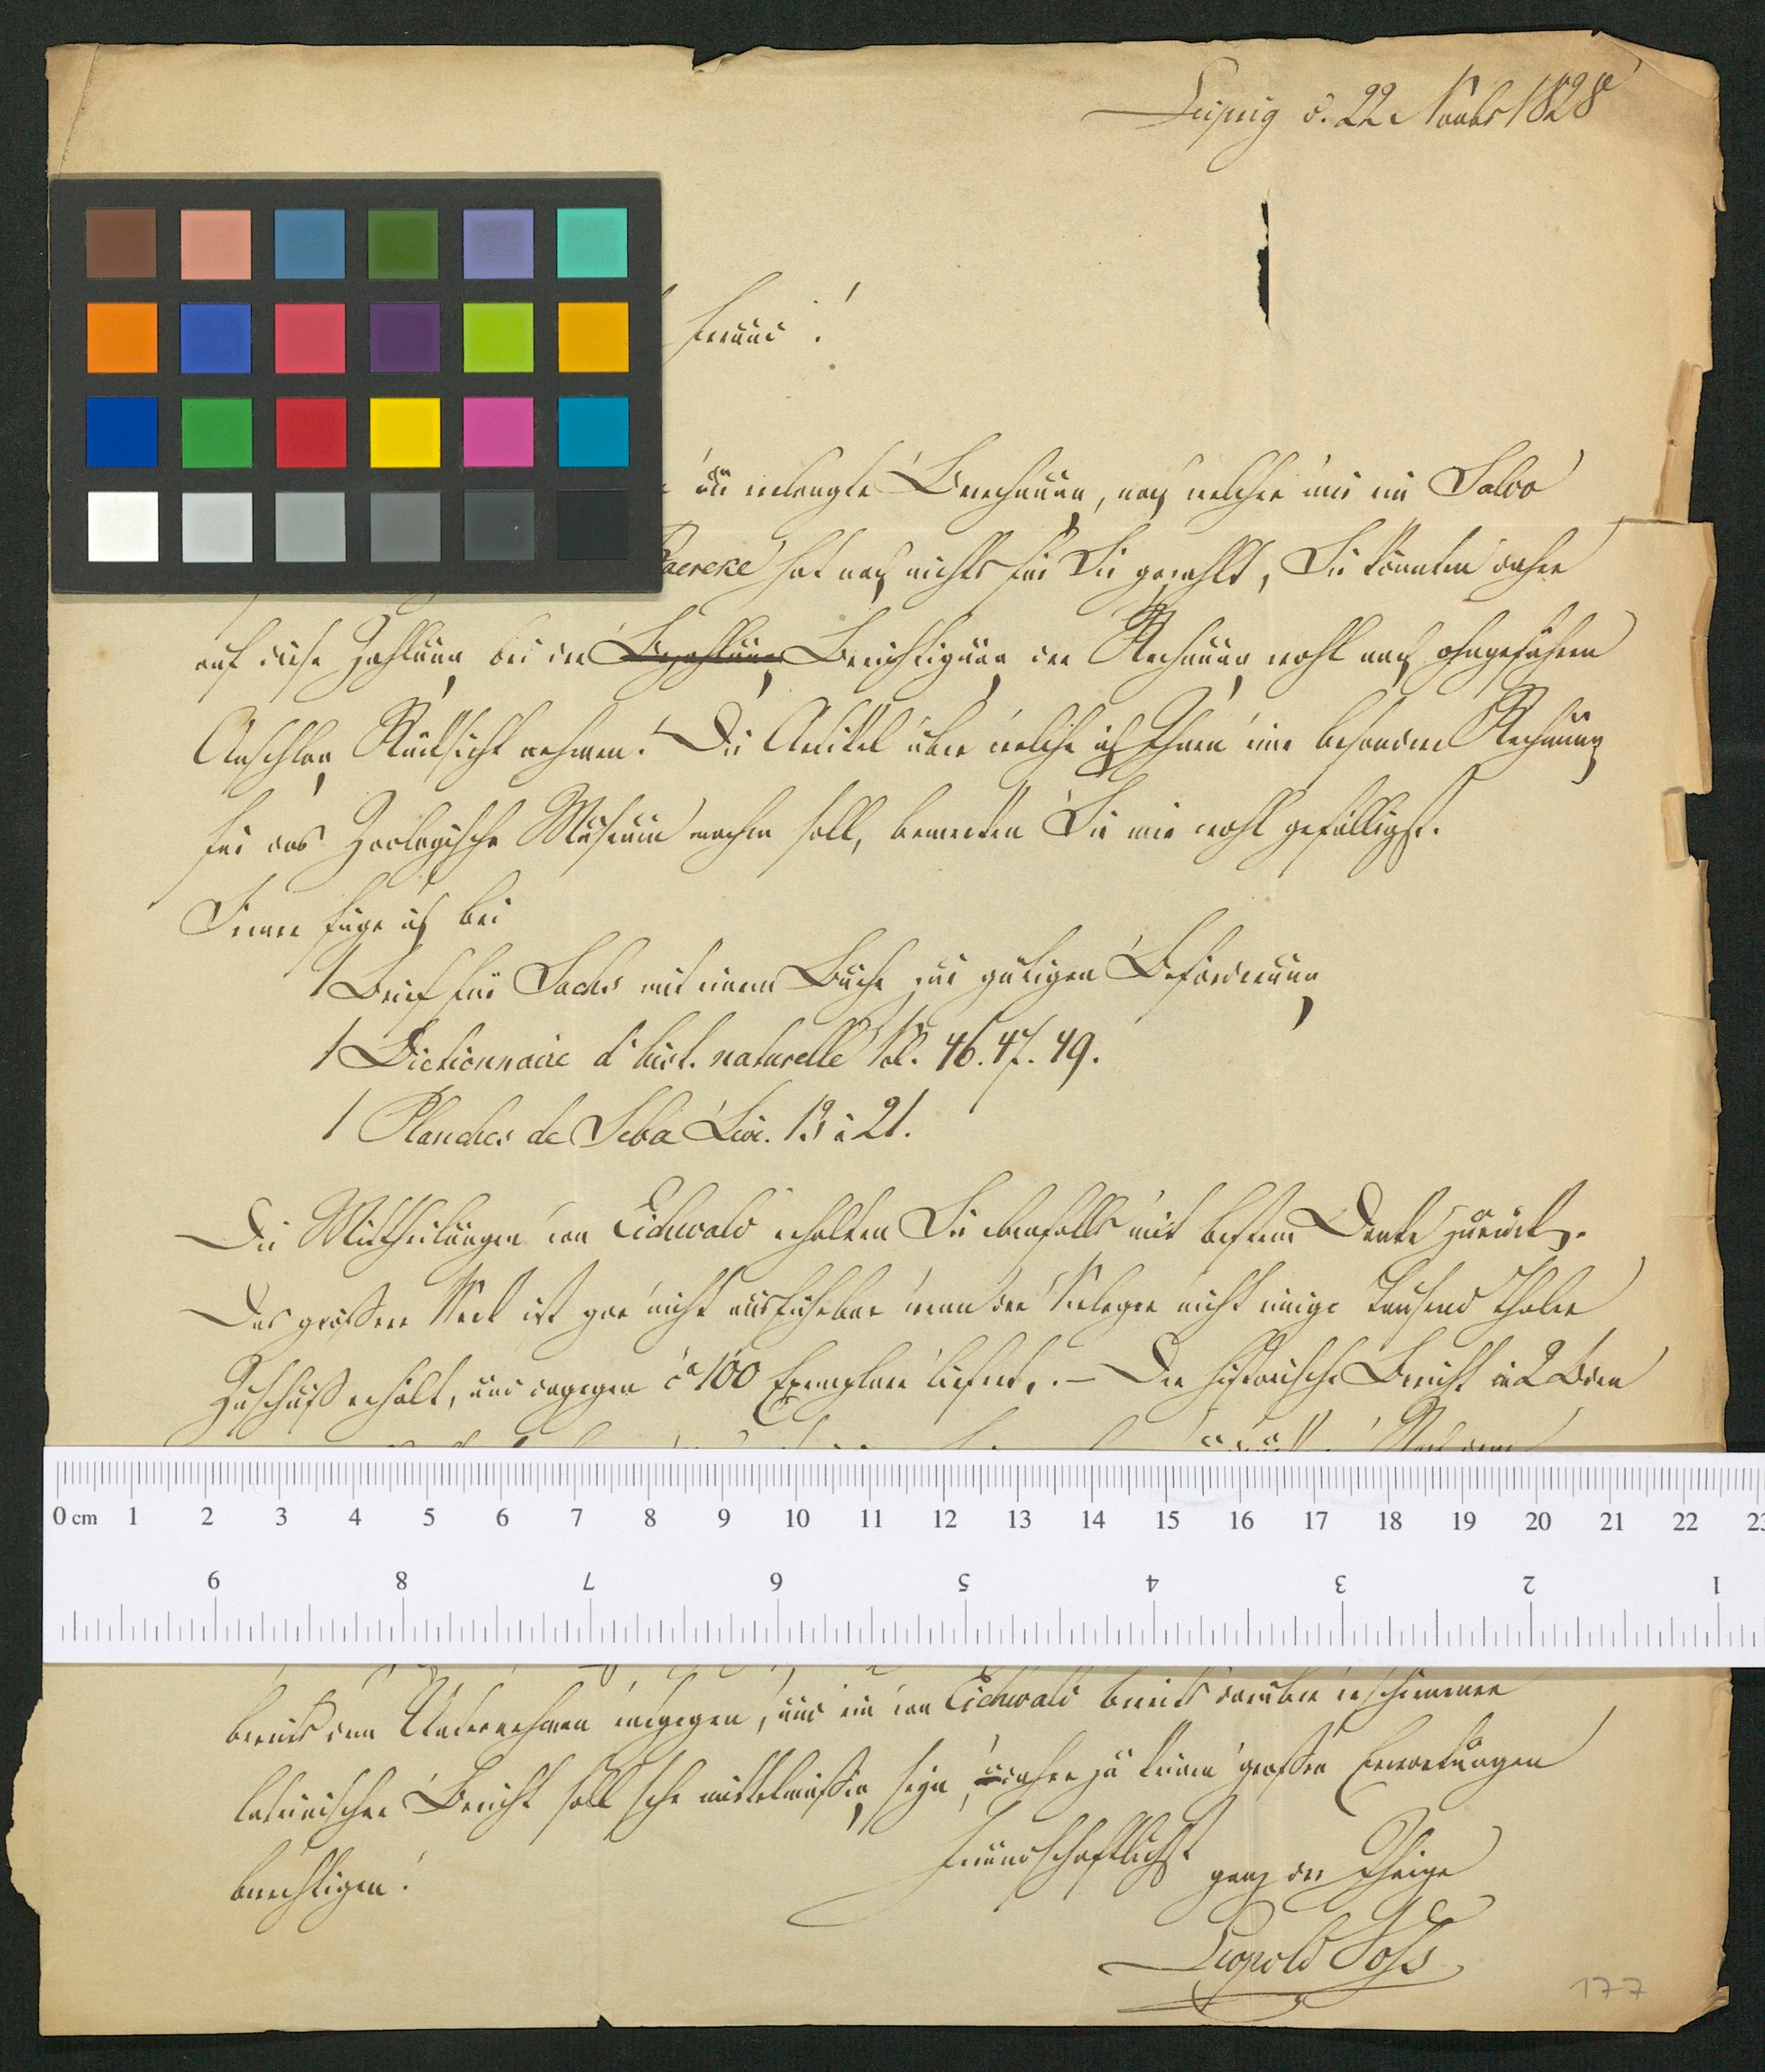 Leipzig d. 22 Novbr 1828
Freund!
verlangte Berechnung, nach welcher mir im Saldo
hat noch nichts für Sie gezahlt, Sie könnten daher
auf diese Zahlung bei der Bezahlung Berichtigung der Rechnung wohl nach ohngefährem
Anschlag Rücksicht nehmen. Die Artikel über welche ich Ihnen eine besondere Rechnung
für das Zoologische Museum machen soll, bemerken Sie mir wohl gefälligst.
Ferner füge ich bei
1 Brief für Sachs mit einem Buche zur gütigen Beförderung
1 Dictionnaire d'hist. naturelle Vol. 46. 47. 49.
1 Planches de Seba Livr. 13 à 21.
Die Mittheilungen von Eichwald erhalten Sie ebenfalls mit bestem Danke zurück.
Das größere Werk ist gar nicht ausführbar wenn der Verleger nicht einige Tausend Thaler
Zuschuß erhält, und dagegen ca 100 Exemplare liefert. – Der historische Bericht in 2 Bden
0 cm 1 2 3 4 5 6 7 8 9 10 11 12 13 14 15 16 17 18 19 20 21 22 23
9 8 7 6 5 4 3 2 1
bereits dem Unternehmen entgegen, und ein von Eichwald bereits darüber erschienener
lateinischer Bericht soll sehr mittelmäßig seyn, daher zu keinen großen Erwartungen
berechtigen!
Freundschaftlichst
ganz der Ihrige
Leopold Voß
177